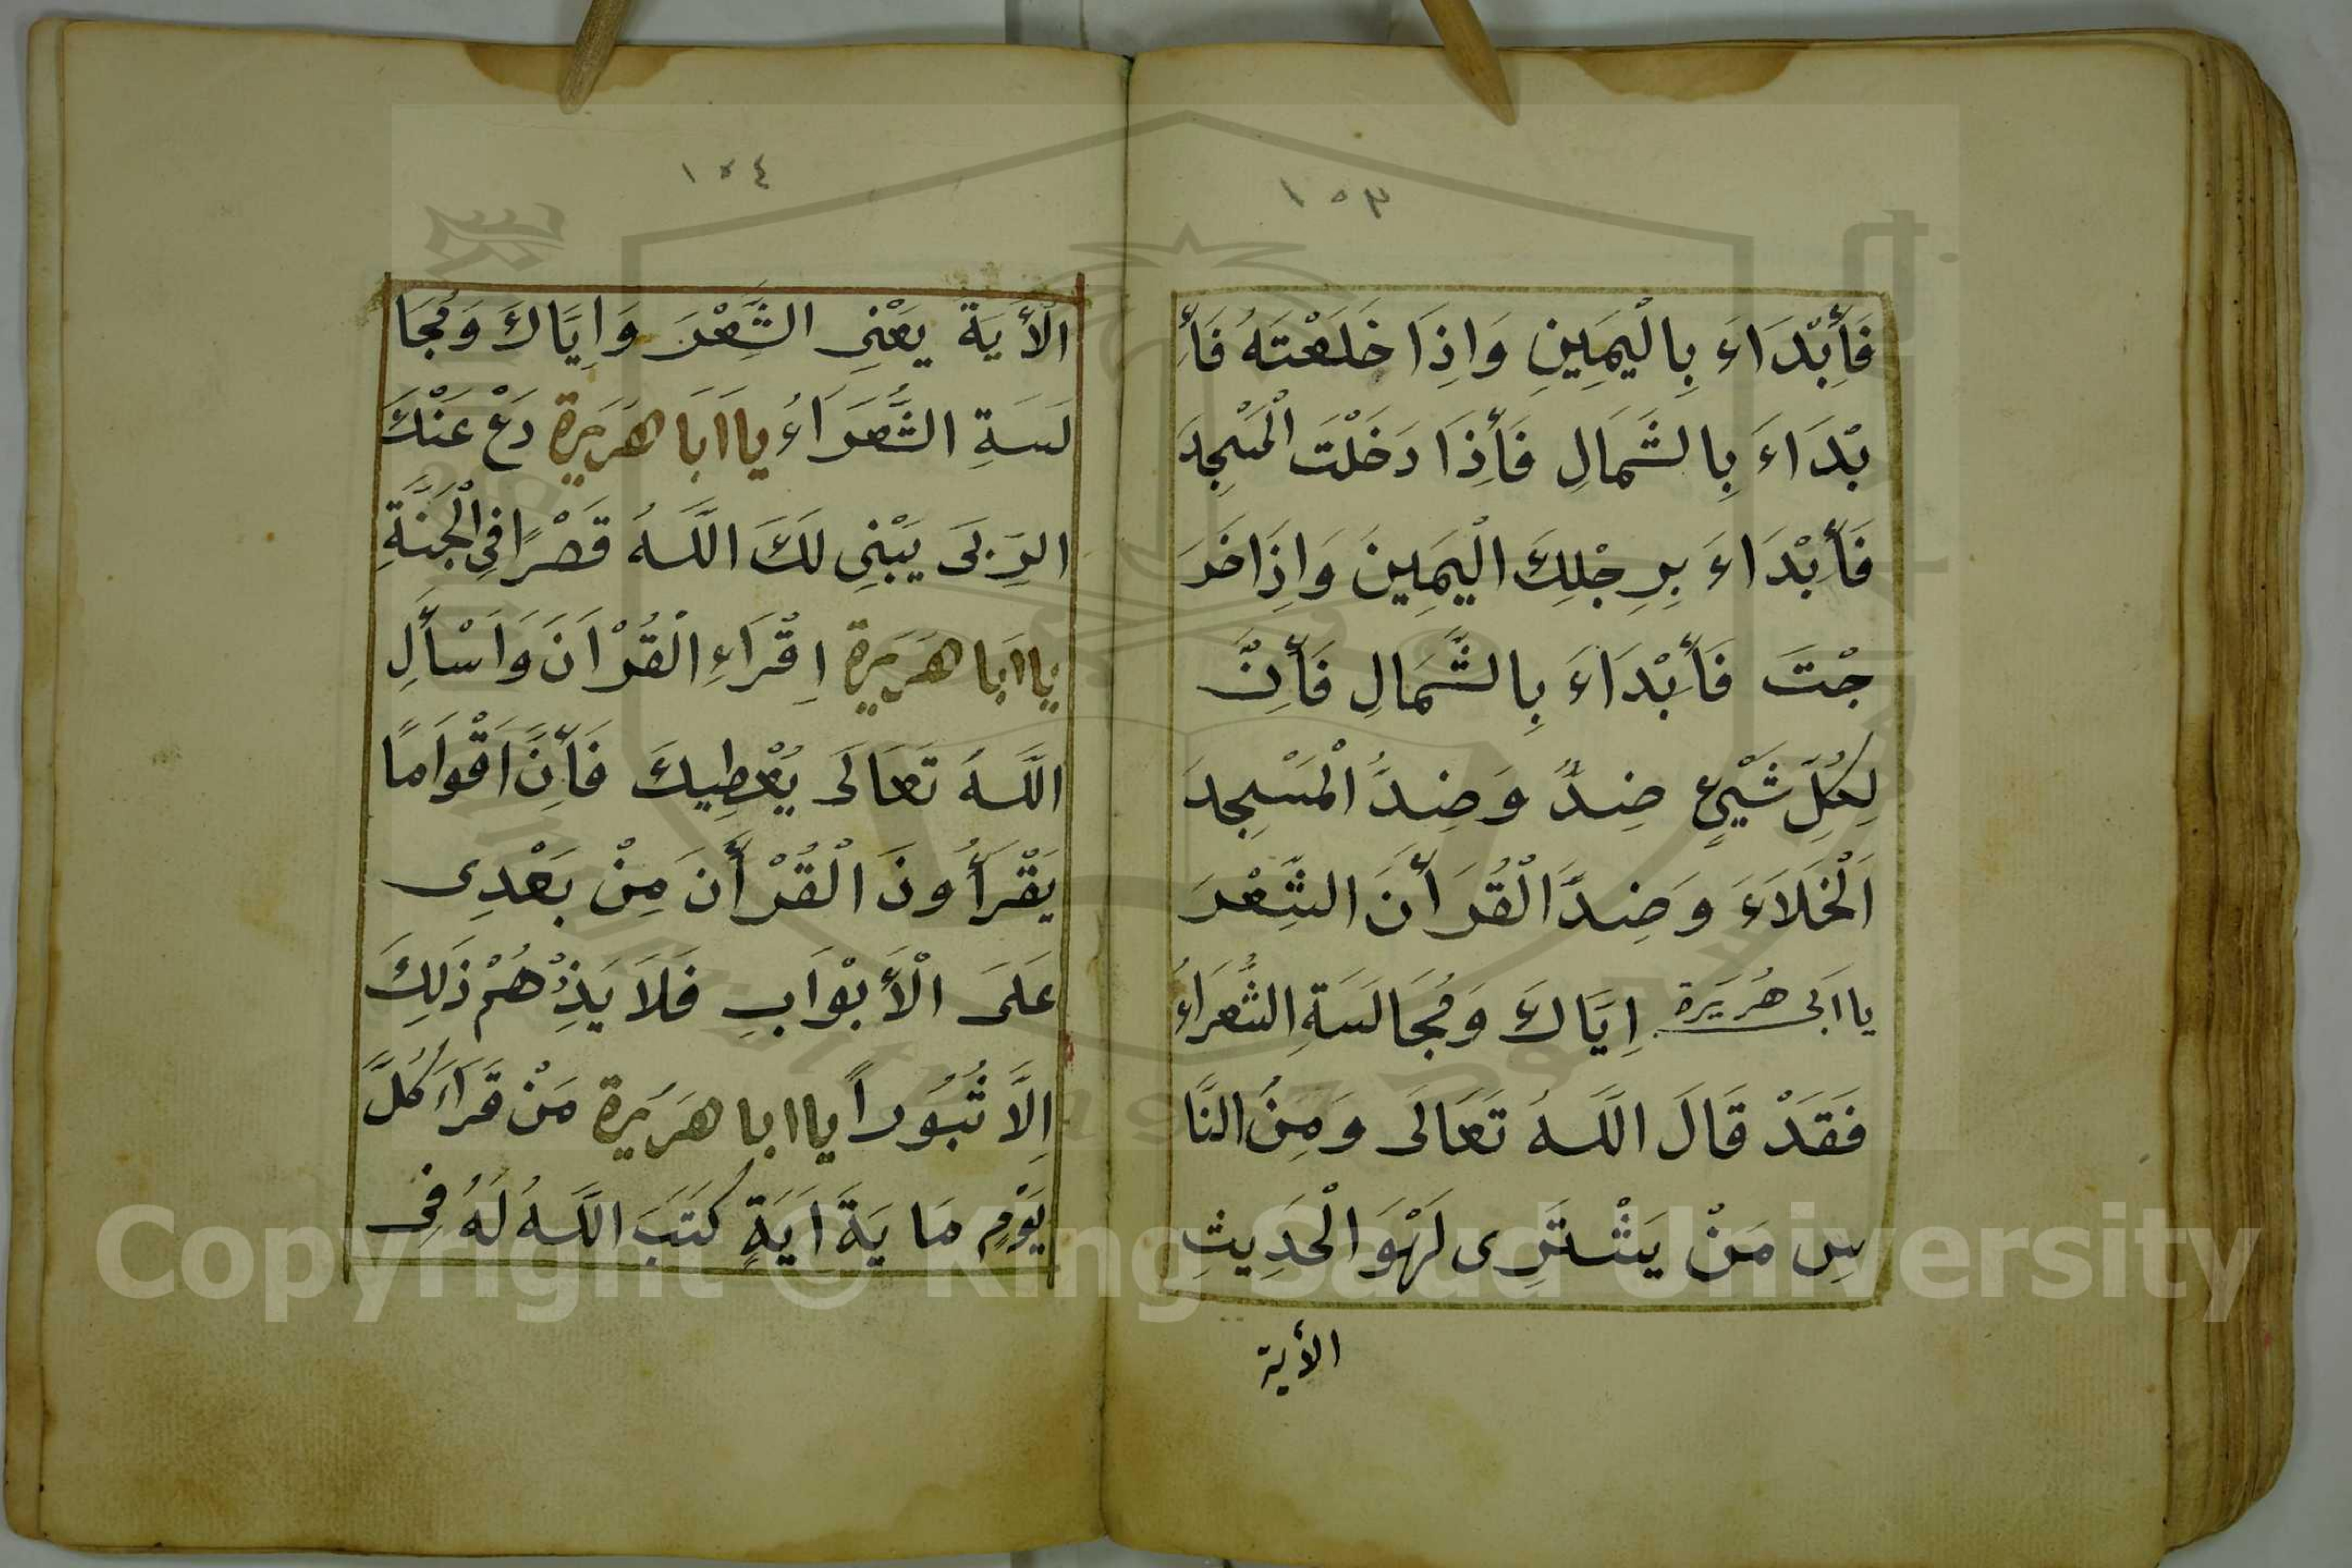 ١٥٣
فَأِبْدَاءَ بِالْيَمِينِ وَاِذَا خَلَعْتَهُ فَأِ
بْدَاءَ بِالشَّمَالِ فَأِذَا دَخَلْتَ الْمَسْجِدَ
فَأبْدَاءَ بِرِجْلِكَ الْيَمِينَ وَاِذَا خَرَ
جْتَ فَأبْدَاءَ بِالشَّمَالِ فَأِنَّ
لِكُلِّ شَيْءٍ ضِدٌّ وَضِدُّ الْمَسْجِدَ
اَلْخَلَاءَ وَضِدَّ الْقُرَأنَ الشِّعْرَ
يا ابى هُرَيَرة اِيَّاكَ وَمُجَالَسَةِ الشُّعَرَاءُ
فَقَدْ قَالَ اللَّهُ تَعَالَى وَمِنُ النَّا
سِ مَنْ يَشْتَرِى لَهْوَ الْحَدِيثِ
الأية
١٥٤
الْأيَةَ يَعْنِى الشِّعْرَ وَاِيَّاكَ وَمُجَا
لَسَةِ الشُّعَرَاءُ يا اَبَا هُرَيَرة دَعْ عَنْكَ
الرِبَى يَبْنِى لَكَ اللَّهُ قَصْرًا فِى الْجَنَّةِ
يا ابَا هُرَيَرة اِقْرَاءِ الْقُرْاَنَ وَاَسْأَلِ
اللَّهُ تَعَالَى يُعْطِيكَ فَأِنَّ اَقْوَامًا
يَقْرَأُونَ الْقُرْأَنَ مِنْ بَعْدِى
عَلَى الْأَبْوَابِ فَلَا يَذِدْهُمْ ذَلِكَ
اِلَّا ثُبُوراً يا ابا هرَيَرة مَنْ قَرَاءَ كُلَّ
يَوْمٍ مَايَةَ اَيَةٍ كَتَبَ اللَّهُ لَهُ فِى
Copyright © King Saud University